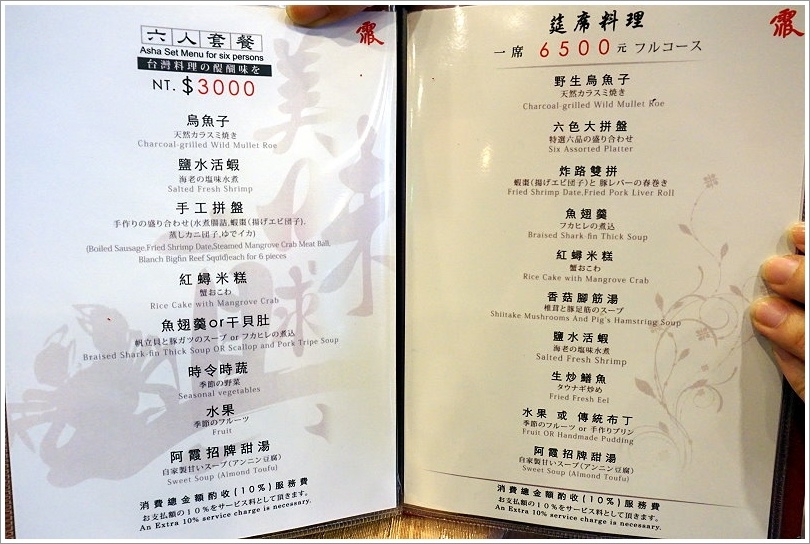 六人套餐
Asha Set Menu for six persons
台灣料理の醍醐味を
NT. $3000
霞
烏魚子
天然カラスミ焼き
Charcoal-grilled Wild Mullet Roe
鹽水活蝦
海老の塩味水煮
Salted Fresh Shrimp
手工拼盤
手作りの盛り合わせ(水煮腸詰,蝦棗(揚げエビ団子),
蒸しカニ団子,ゆでイカ)
(Boiled Sausage,Fried Shrimp Date,Steamed Mangrove Crab Meat Ball,
Blanch Bigfin Reef Squid)each for 6 pieces
紅蟳米糕
蟹おこわ
Rice Cake with Mangrove Crab
魚翅羹or干貝肚
帆立貝と豚ガツのスープ or フカヒレの煮込
Braised Shark-fin Thick Soup OR Scallop and Pork Tripe Soup
時令時蔬
季節の野菜
Seasonal vegetables
水果
季節のフルーツ
Fruit
阿霞招牌甜湯
自家製甘いスープ(アンニン豆腐)
Sweet Soup (Almond Toufu)
消費總金額酌收(10%)服務費
お支払額の10%をサービス料として頂きます。
An Extra 10% service charge is necessary.
筵席料理
一席 6500元 フルコース
霞
野生烏魚子
天然カラスミ焼き
Charcoal-grilled Wild Mullet Roe
六色大拼盤
特選六品の盛り合わせ
Six Assorted Platter
炸路雙拼
蝦棗(揚げエビ団子)と 豚レバーの春巻き
Fried Shrimp Date,Fried Pork Liver Roll
魚翅羹
フカヒレの煮込
Braised Shark-fin Thick Soup
紅蟳米糕
蟹おこわ
Rice Cake with Mangrove Crab
香菇腳筋湯
椎茸と豚足筋のスープ
Shiitake Mushrooms And Pig's Hamstring Soup
鹽水活蝦
海老の塩味水煮
Salted Fresh Shrimp
生炒鱔魚
タウナギ炒め
Fried Fresh Eel
水果 或 傳統布丁
季節のフルーツ or 手作りプリン
Fruit OR Handmade Pudding
阿霞招牌甜湯
自家製甘いスープ(アンニン豆腐)
Sweet Soup (Almond Toufu)
消費總金額酌收(10%)服務費
お支払額の10%をサービス料として頂きます。
An Extra 10% service charge is necessary.